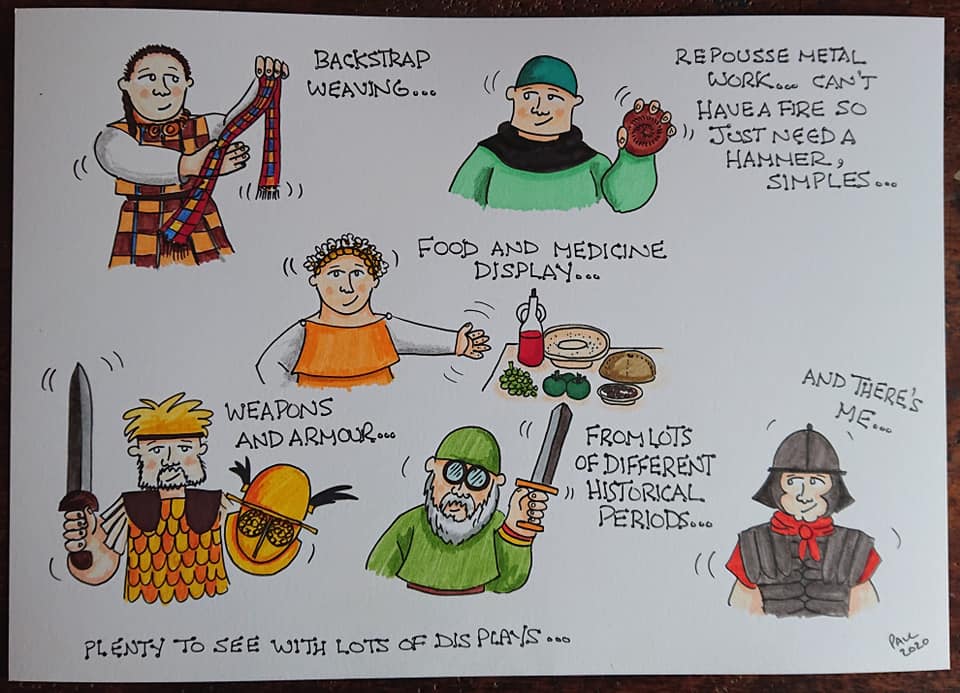 BACKSTRAP
WEAVING...
REPOUSSE METAL
WORK... CAN'T
HAVE A FIRE SO
JUST NEED A
HAMMER,
SIMPLES...
FOOD AND MEDICINE
DISPLAY...
WEAPONS
AND ARMOUR...
FROM LOTS
OF DIFFERENT
HISTORICAL
PERIODS...
AND THERE'S
ME...
PLENTY TO SEE WITH LOTS OF DISPLAYS...
PAUL
2020